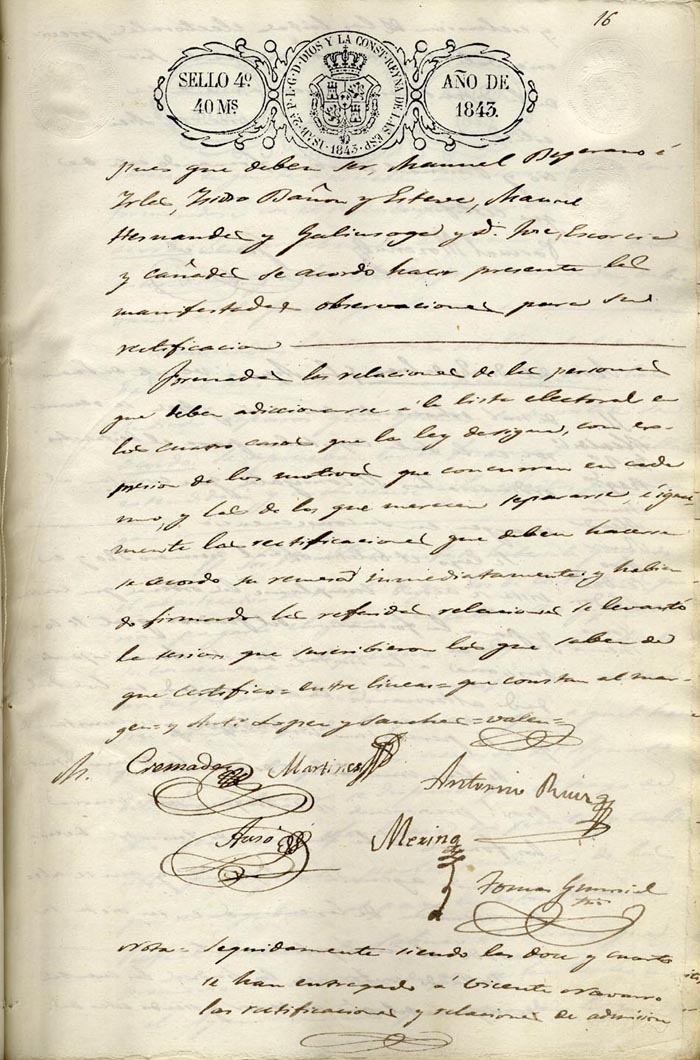 16
SELLO 4º
40 Ms.
ISAB. 2ª P. L. G. D. DIOS Y LA CONST. REYNA DE LAS ESP.
1843.
AÑO DE
1843.
pues que deben ser, Manuel Begerano é
Irles, Isidro Bañon y Esteve, Manuel
Hernandez y Galiusoga y D. Jose Escorcia
y Cañada se acordo hacer presente las
manifestadas observaciones para su
rectificacion
Formadas las relaciones de las personas
que deben adiccionarse á la lista electoral en
los cuatro casos que la ley designa, con ex-
presion de los motivos que concurren en cada
uno, y las de los que merecen separarse, é igual-
mente las rectificaciones que deben hacerse
se acordo su remesa inmediatamente y habien-
do firmado las referidas relaciones se levantó
la sesion que suscribieron los que saben de
que certifico = entre lineas = que constan al mar-
gen = y Antº Lopez y Sanchez = valen =
Cremades
Martinez
Antonio Ruiz
Asso
Mezina
Tomas
Srio
Nota = Seguidamente siendo las doce y cuarto
se han entregado á Vicente Navarro
las rectificaciones y relaciones de admision